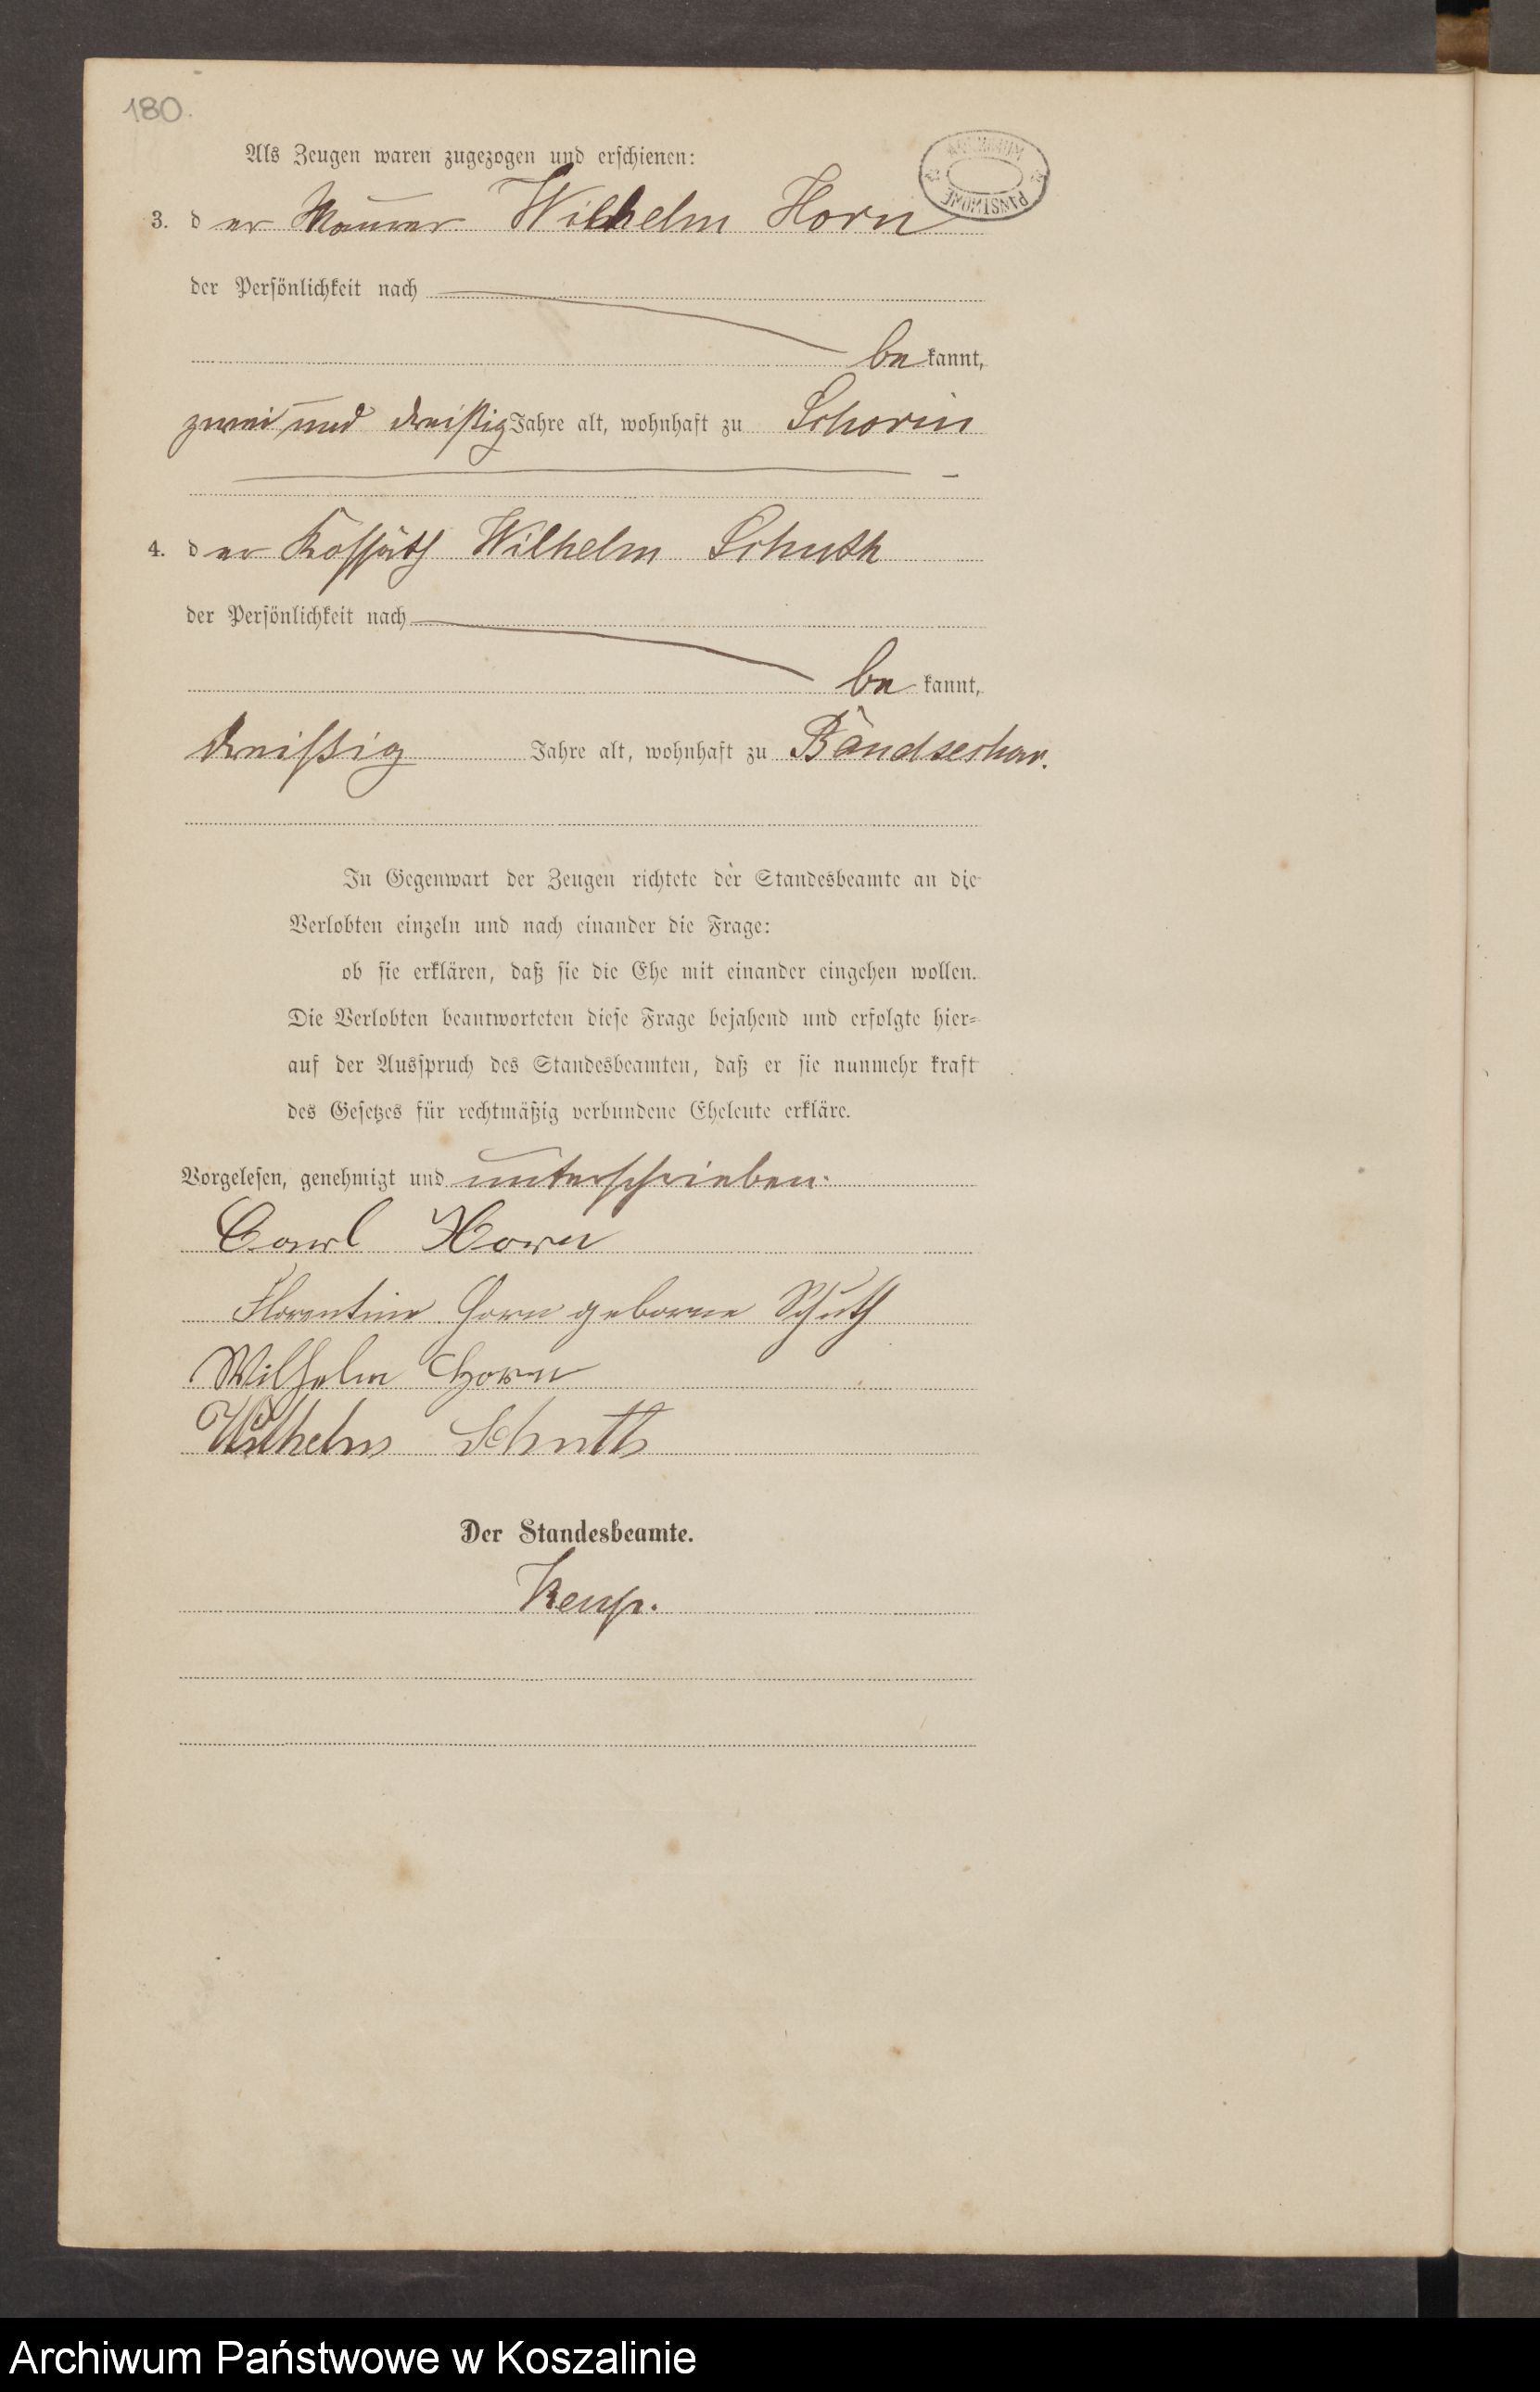 180.
ARCHIWUM PAŃSTWOWE
Als Zeugen waren zugezogen und erschienen:
3. der Maurer Wilhelm Horn
der Persönlichkeit nach
bekannt,
zwei und dreißig Jahre alt, wohnhaft zu Schorin
4. der Kossäth Wilhelm Schuth
der Persönlichkeit nach
bekannt,
dreißig Jahre alt, wohnhaft zu
In Gegenwart der Zeugen richtete der Standesbeamte an die
Verlobten einzeln und nach einander die Frage:
ob sie erklären, daß sie die Ehe mit einander eingehen wollen.
Die Verlobten beantworteten diese Frage bejahend und erfolgte hier-
auf der Ausspruch des Standesbeamten, daß er sie nunmehr kraft
des Gesetzes für rechtmäßig verbundene Eheleute erkläre.
Vorgelesen, genehmigt und unterschrieben.
Carl Horn
Florentine Horn geborne Schuth
Wilhelm Horn
Wilhelm Schuth
Der Standesbeamte.
Archiwum Państwowe w Koszalinie